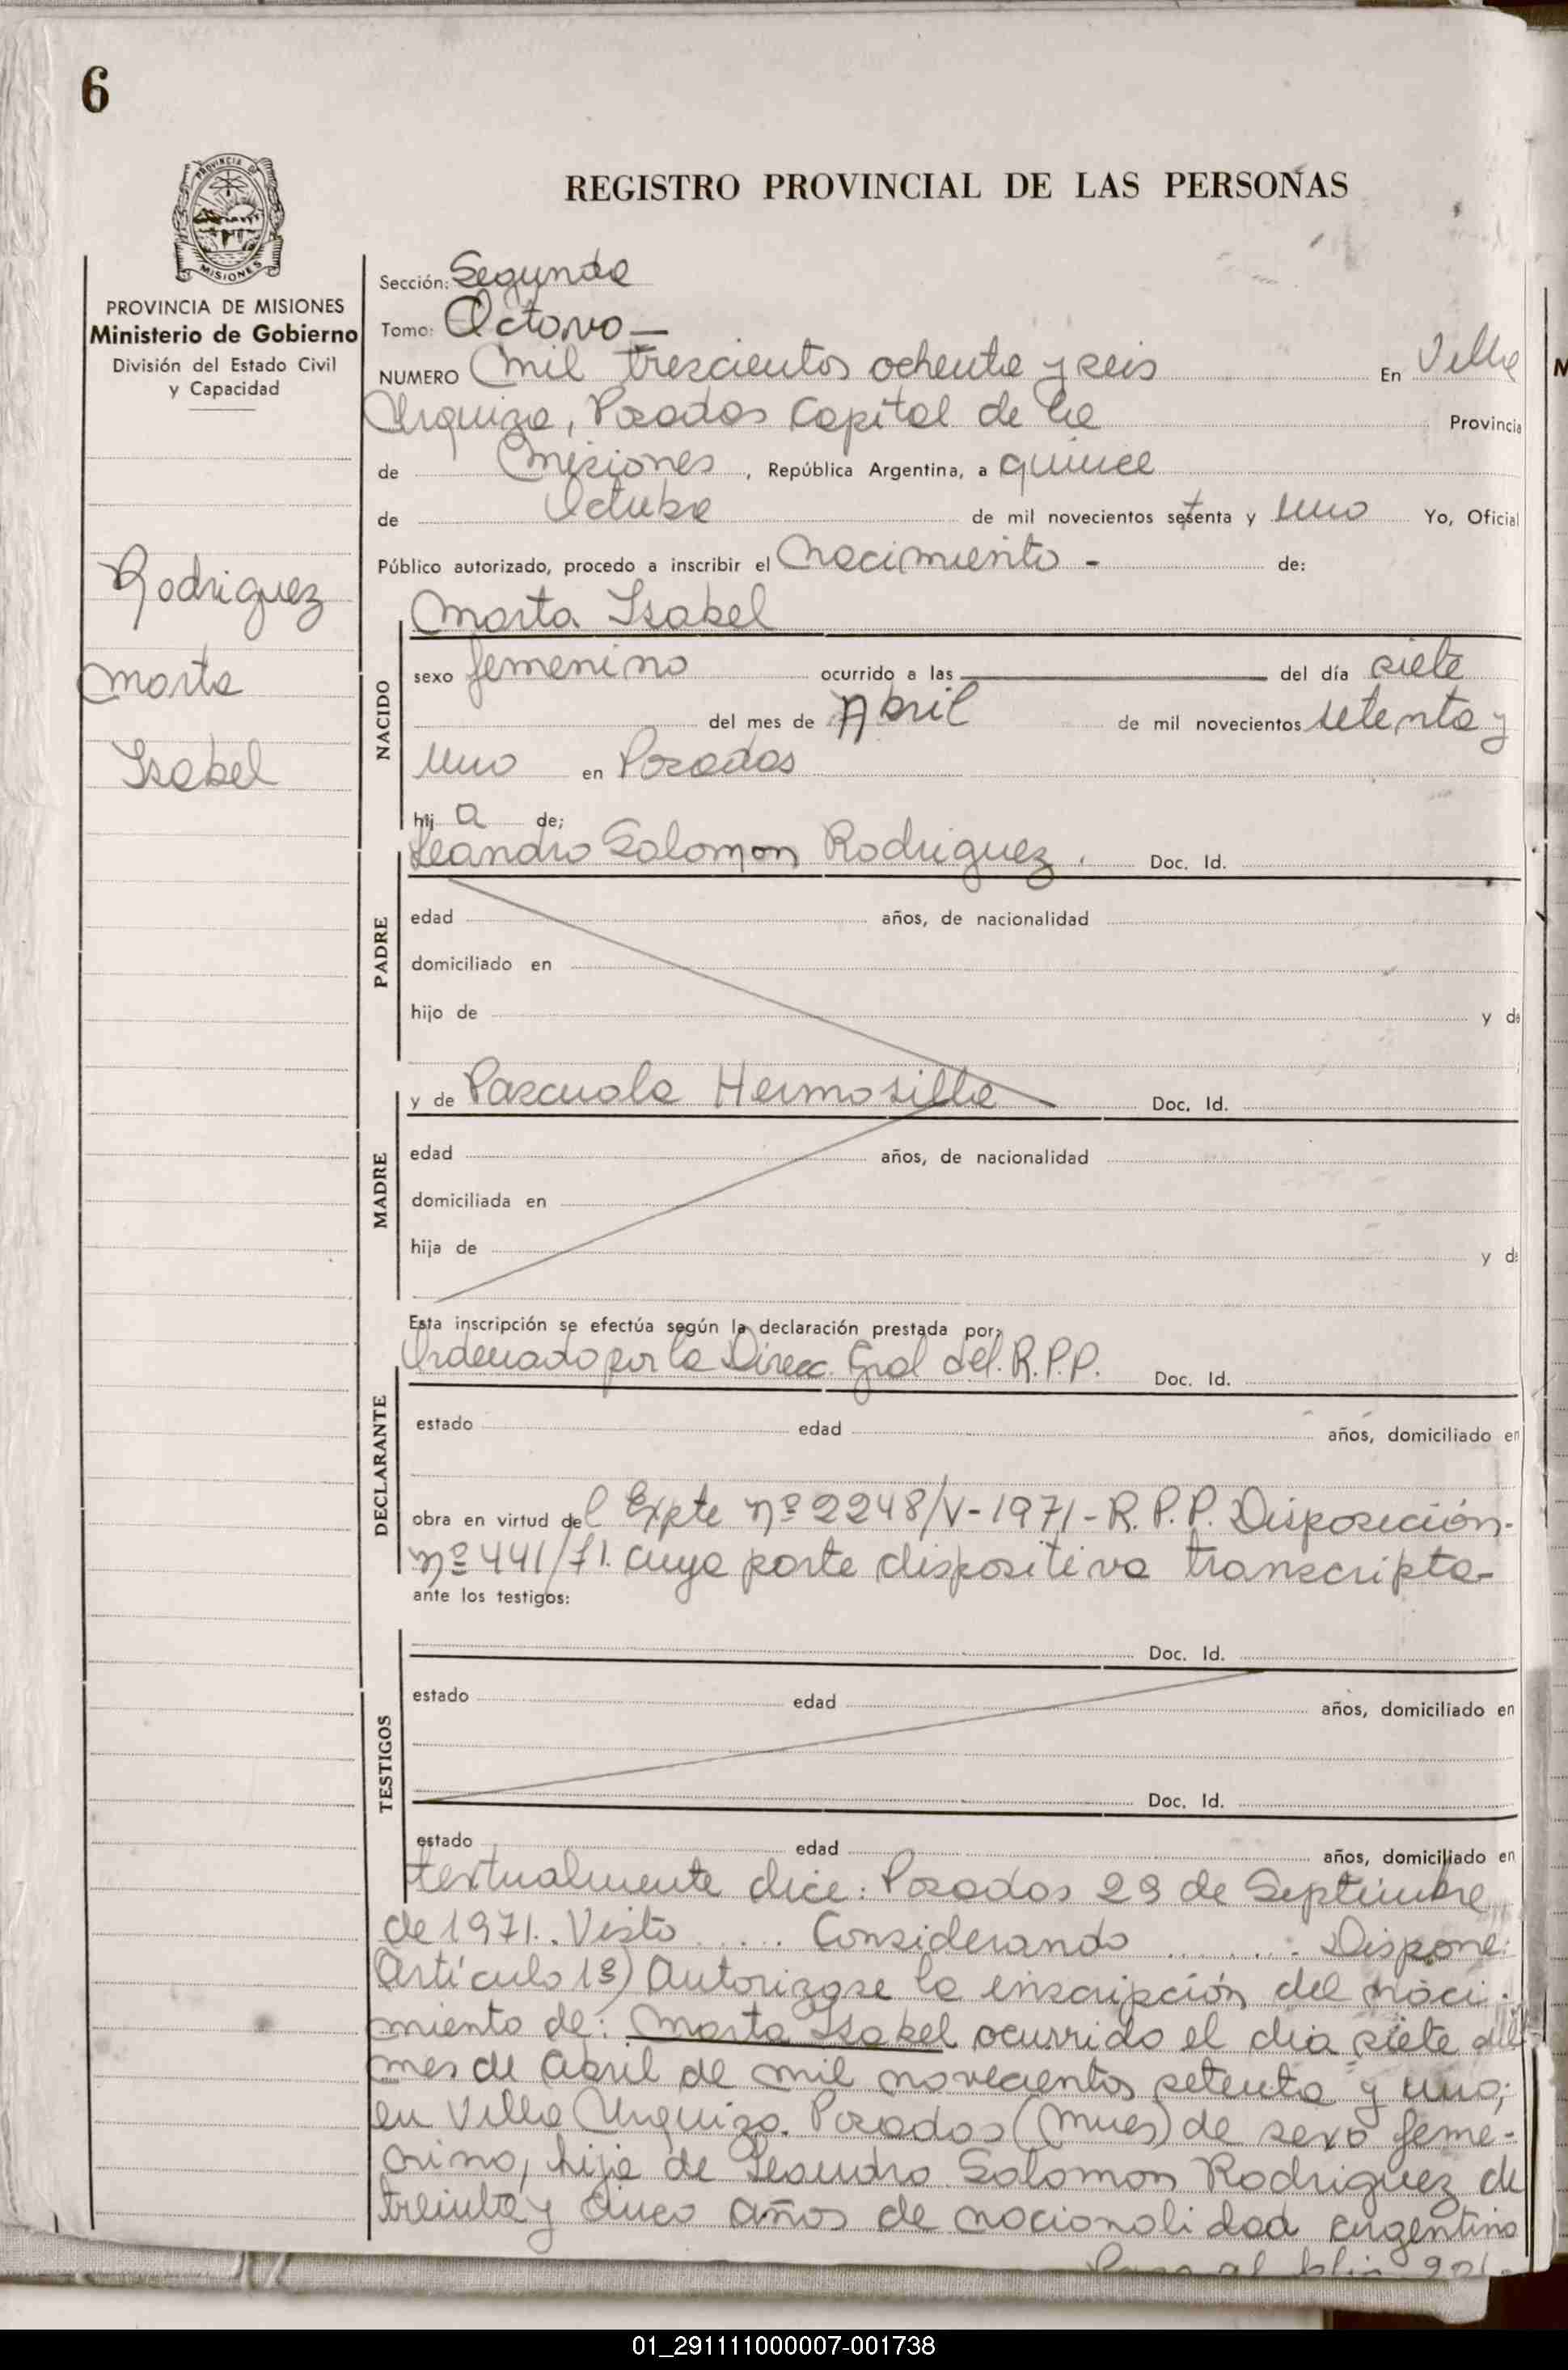 6
PROVINCIA DE
MISIONES
REGISTRO PROVINCIAL DE LAS PERSONAS
PROVINCIA DE MISIONES
Ministerio de Gobierno
División del Estado Civil
y Capacidad
Rodriguez
Marta
Isabel
Sección: Segunda
Tomo: Octavo —
NUMERO Mil trescientos ochenta y seis En Villa
Urquiza, Posadas Capital de la Provincia
de Misiones, República Argentina, a quince
de Octubre de mil novecientos setenta y uno Yo, Oficial
Público autorizado, procedo a inscribir el Nacimiento - de:
Marta Isabel
NACIDO
sexo femenino ocurrido a las del día siete
del mes de Abril de mil novecientos setenta y
uno en Posadas
hij a de;
Leandro Salomon Rodriguez. Doc. Id.
PADRE
edad años, de nacionalidad
domiciliado en
hijo de y de
y de Pascuala Hermosilla Doc. Id.
MADRE
edad años, de nacionalidad
domiciliada en
hija de y de
Esta inscripción se efectúa según la declaración prestada por:
Ordenado por la Direcc. Gral del. R.P.P. Doc. Id.
DECLARANTE
estado edad años, domiciliado en
obra en virtud del Expte nº 2248/V-1971-R.P.P. Disposición-
nº 441/71. cuya parte dispositiva transcripta-
ante los testigos:
Doc. Id.
TESTIGOS
estado edad años, domiciliado en
Doc. Id.
estado edad años, domiciliado en
textualmente dice: Posadas 29 de Septiembre
de 1971. Visto ..... Considerando ....... Dispone:
Artículo 1º) Autorizase la inscripción del naci-
miento de: Marta Isabel ocurrido el dia siete del
mes de abril de mil novecientos setenta y uno;
en Villa Urquiza. Posadas (Mnes) de sexo feme-
nino, hija de Leandro Salomon Rodriguez de
treinta y cinco años de nacionalidad argentino
Pasa al folio
01_291111000007-001738